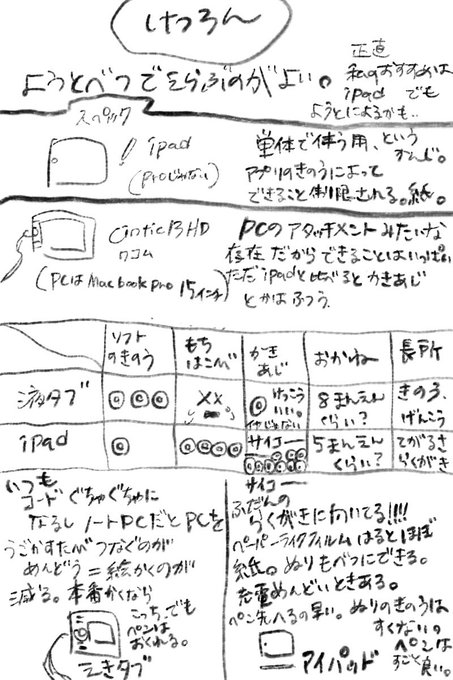 けつろん
ようとべつでえらぶのがよい。
正直
私のおすすめは
ipad でも
ようとによるかも..
スペック
ipad
(proじゃない)
単体で使う用、という
かんじ。
アプリのきのうによって
できること制限される。紙。
Cintic13HD
ワコム
(PCはMacbook pro 15インチ)
PCのアタッチメントみたいな
存在だからできることはいっぱい
ただipadと比べるとかきあじ
とかはふつう。
ソフト
のきのう
もち
はこび
かき
あじ
おかね
長所
液タブ
◎◎◎
××
◎けっこう
いい。
8まんえん
くらい?
きのう、
げんこう
ipad
◎
◎◎◎◎
サイコー
◎◎◎◎◎◎◎
5まんえん
くらい?
てがるさ
らくがき
いつも
コードぐちゃぐちゃに
なるしノートPCだとPCを
うごかすたびつなぐのが
めんどう=絵かくのが
減る。本番かくなら
こっち、でも
ペンは
おくれる。
えきタブ
サイコー
ふだんの
らくがきに向いてる!!!!
ペーパーライクフィルムはるとほぼ
紙。ぬりもべつにできる。
充電めんどいときある。
ペン先へるの早い。ぬりのきのうは
すくないの
ペンは
すごと良い。
アイパッド